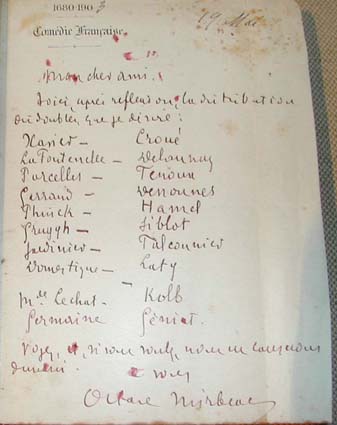 1680-1903
Comédie Française
19 Mai
Mon cher ami.
Voici, après réflexion, la distribution
en double, que je désire :
Xavier — Croué
La Fontenelle — Delaunay
Porcelles — Ténoux
Gerrand — Desonnes
Phinck — Hamel
Gruggh — Siblot
Jardinier — Falconnier
Domestique — Laty
Mde Lechat — Kolb
Germaine Géniat.
Voyez, et, si vous voulez, nous en causerons
à vous
Octave Mirbeau